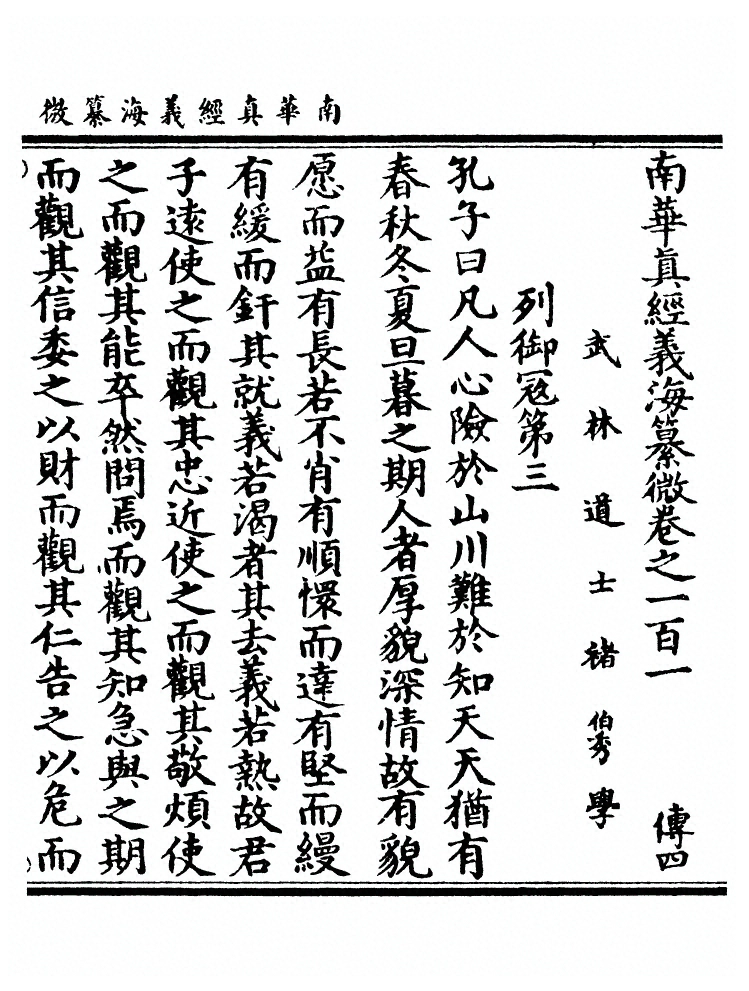 南華真經義海纂微
南華眞經義海纂微卷之一百一 傳四
武林道士褚伯秀學
列御冦第三
孔子曰凡人心險於山川難於知天天猶有
春秋冬夏旦暮之期人者厚貌深情故有貌
愿而益有長若不肖有順懁而達有堅而縵
有緩而釬其就義若渴者其去義若熱故君
子逺使之而觀其忠近使之而觀其敬煩使
之而觀其能卒然問焉而觀其知急與之期
而觀其信委之以財而觀其仁告之以危而